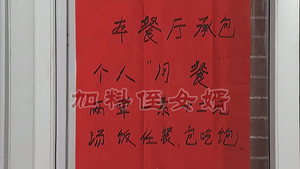 本餐厅承包
个人“月餐”
加料侄女婿
两荤一素一
汤饭任装,包吃饱,